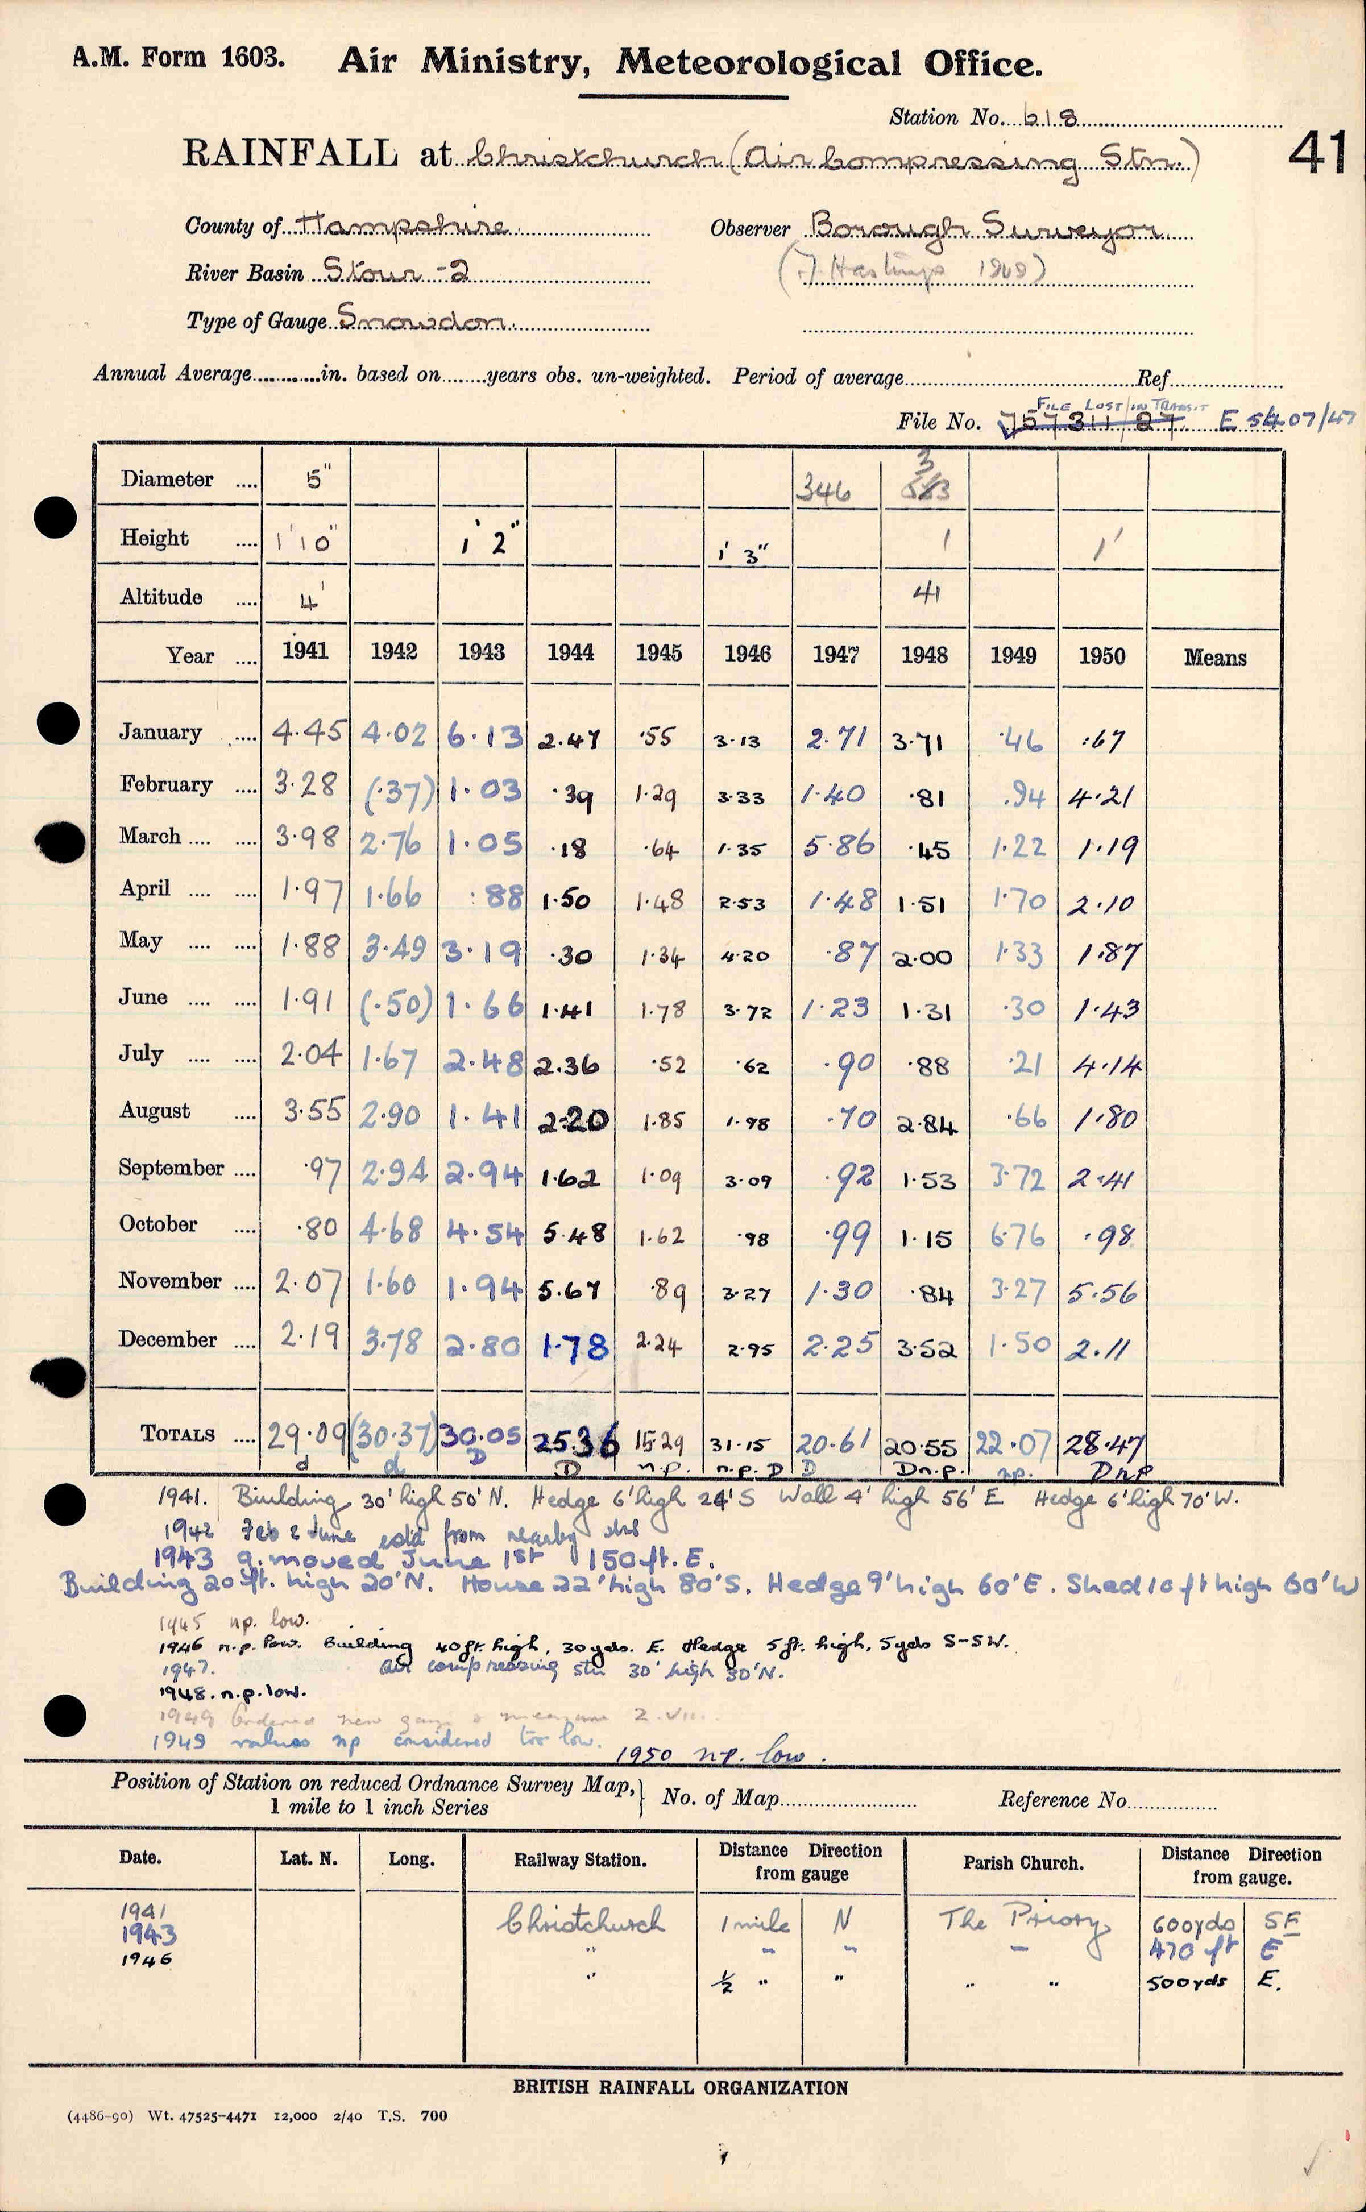 A.M. Form 1603. Air Ministry, Meteorological Office.
Station No. 618
RAINFALL at Christchurch (Air Compressing Stn.) 41
County of Hampshire Observer Borough Surveyor
River Basin Stour -2 Hastings
Type of Gauge Snowdon.
Annual Average............in. based on........years obs. un-weighted. Period of average Ref
FILE LOST IN TRANSIT
File No. E 5407/47
Diameter .... 5" 346 3
Height .... 1' 10" 1' 2" 1' 3" 1 1'
Altitude .... 4' 41
Year .... 1941 1942 1943 1944 1945 1946 1947 1948 1949 1950 Means
January .... 4.45 4.02 6.13 2.47 .55 3.13 2.71 3.71 .46 .67
February .... 3.28 (.37) 1.03 .39 1.29 3.33 1.40 .81 .94 4.21
March .... .... 3.98 2.76 1.05 .18 .64 1.35 5.86 .45 1.22 1.19
April .... .... 1.97 1.66 .88 1.50 1.48 2.53 1.48 1.51 1.70 2.10
May .... .... 1.88 3.49 3.19 .30 1.34 4.20 .87 2.00 1.33 1.87
June .... .... 1.91 (.50) 1.66 1.41 1.78 3.72 1.23 1.31 .30 1.43
July .... .... 2.04 1.67 2.48 2.36 .52 .62 .90 .88 .21 4.14
August .... 3.55 2.90 1.41 2.20 1.85 1.98 .70 2.84 .66 1.80
September .... .97 2.94 2.94 1.62 1.09 3.09 .92 1.53 3.72 2.41
October .... .80 4.68 4.54 5.48 1.62 .98 .99 1.15 6.76 .98
November .... 2.07 1.60 1.94 5.67 .89 3.27 1.30 .84 3.27 5.56
December .... 2.19 3.78 2.80 1.78 2.24 2.95 2.25 3.52 1.50 2.11
TOTALS .... 29.09 (30.37) 30.05 25.36 15.29 31.15 20.61 20.55 22.07 28.47
d d D D n.p. n.p. D D D n.p. np. D n P
1941. Building 30' high 50' N. Hedge 6' high 24' S Wall 4' high 56' E Hedge 6' high 70' W.
1942 Feb & June estd from nearby stns
1943 g. moved June 1st 150 ft. E.
Building 20 ft. high 20' N. House 22' high 80' S. Hedge 9' high 60' E. Shed 10 ft high 60' W
1945 np. low.
1946 n.p. low. Building 40 ft. high, 30 yds. E. Hedge 5 ft. high, 5 yds S-SW.
1947. Air compressing stn 30' high 30' N.
1948. n.p. low.
1949 Ordered new gauge & measure 2.VII.
1949 values np considered too low. 1950 np. low.
Position of Station on reduced Ordnance Survey Map, } No. of Map Reference No.
1 mile to 1 inch Series
Date. Lat. N. Long. Railway Station. Distance Direction from gauge Parish Church. Distance Direction from gauge.
1941 Christchurch 1 mile N The Priory 600 yds SE
1943 " " " " 470 ft E
1946 " ½ " " " " 500 yds E.
BRITISH RAINFALL ORGANIZATION
(4486-90) Wt. 47525-4471 12,000 2/40 T.S. 700